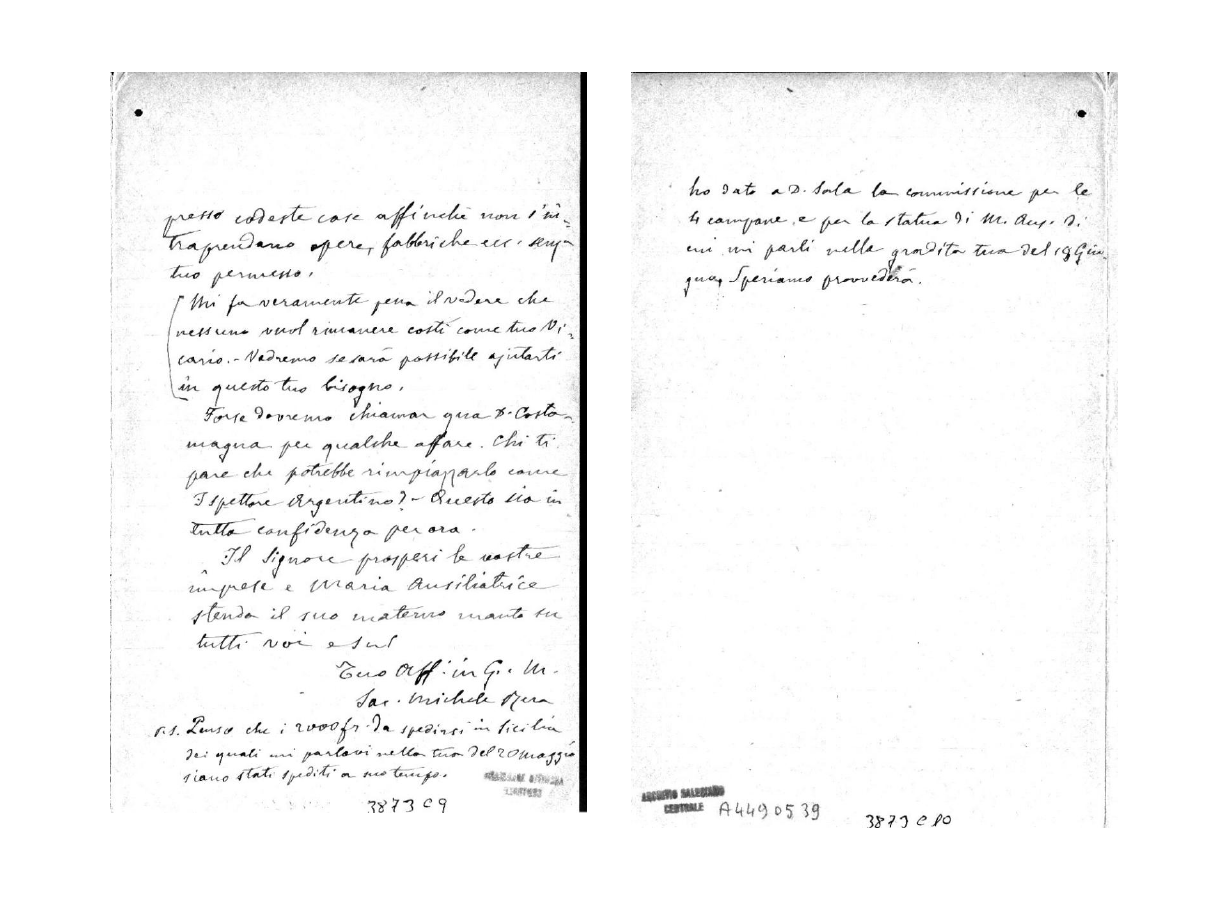 presso codeste case affinchè non s'in=
traprendano opere, fabbriche ecc. senza
tuo permesso.
Mi fa veramente pena il vedere che
nessuno vuol rimanere costì come tuo Vi=
cario. - Vedremo se sarà possibile ajutarti
in questo tuo bisogno.
Forse dovremo chiamar qua D. Costa=
magna per qualche affare. Chi ti
pare che potrebbe rimpiazzarlo come
Ispettore Argentino? - Questo sia in
tutta confidenza per ora.
Il Signore prosperi le vostre
imprese e Maria Ausiliatrice
stenda il suo materno manto su
tutti voi e sul
Tuo Aff. in G. e M.
Sac. Michele Rua
P.S. Penso che i 2000 fr. da spedirsi in Sicilia
dei quali mi parlavi nella tua del 20 Maggio
siano stati spediti a suo tempo.
3873 C 9
ho dato a D. Sala la commissione per le
4 campane, e per la statua di M. Aus. di
cui mi parli nella gradita tua del 19 Giu
gno, Speriamo provvederà.
ARCHIVIO SALESIANO
CENTRALE
A4490539
3873 C 10